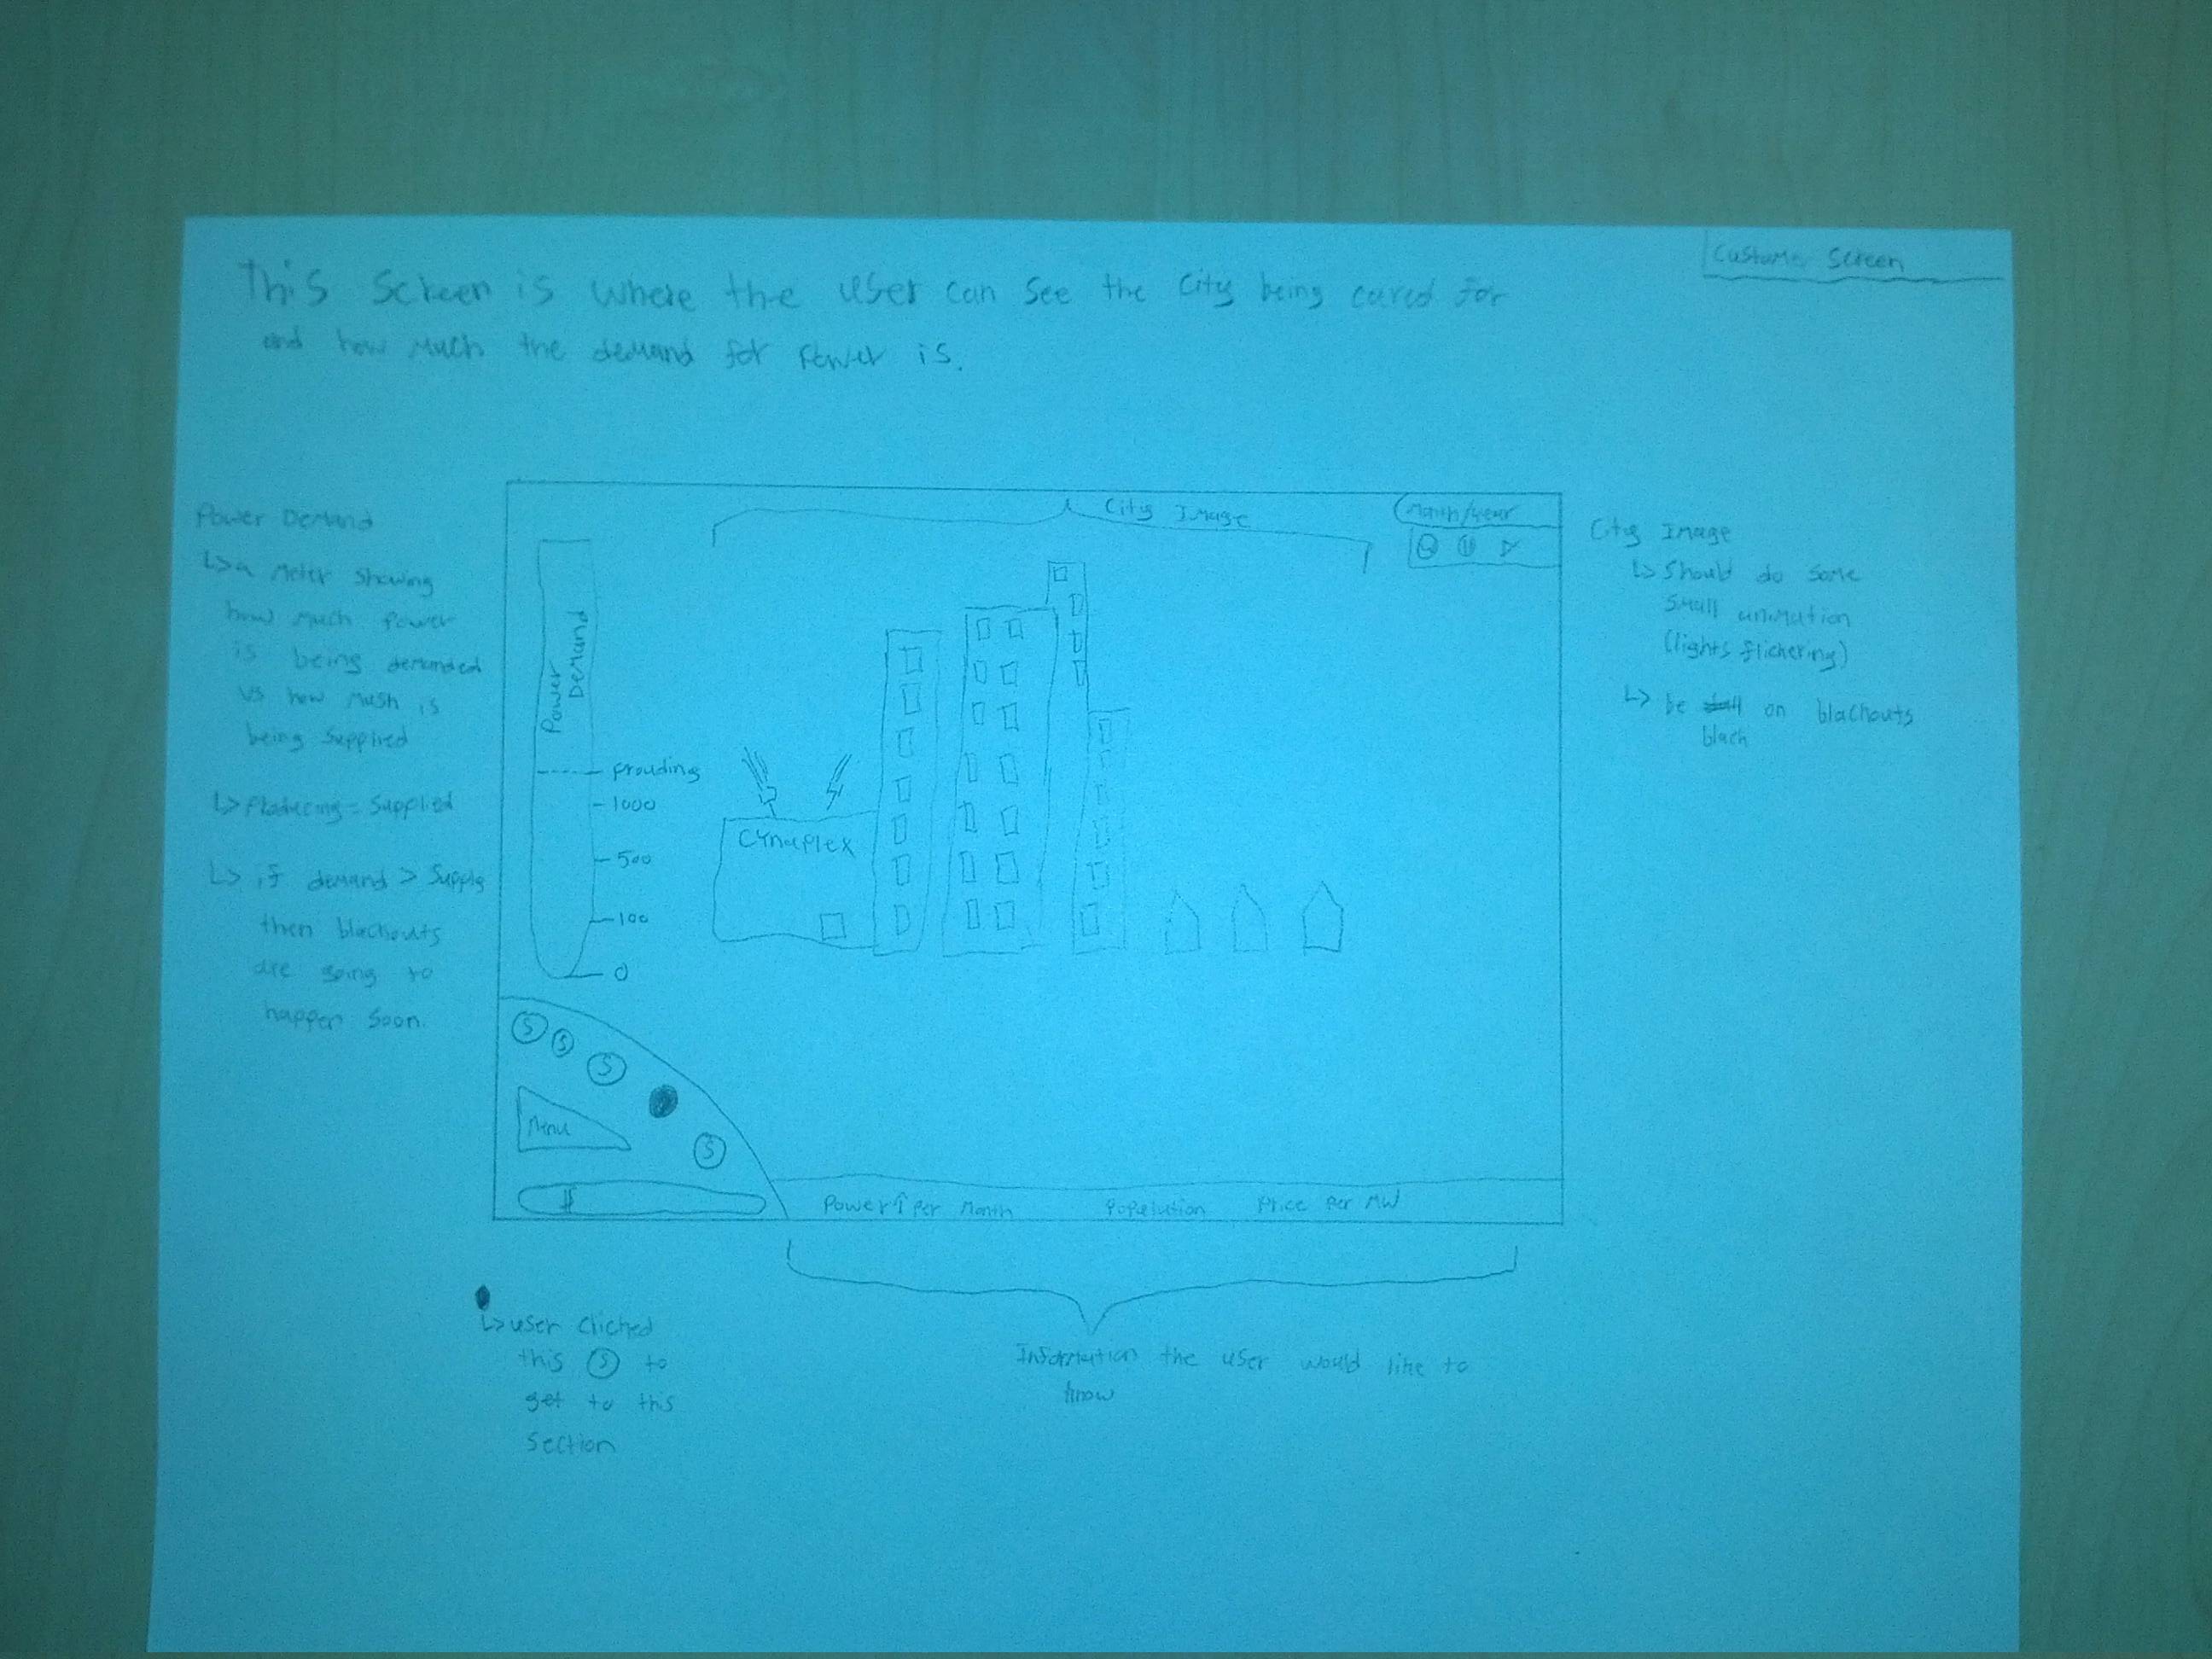 Customer Screen
This screen is where the user can see the city being cared for
and how much the demand for power is.
Power Demand
↳ a meter showing
how much power
is being demanded
vs how mush is
being supplied
↳ Producing = Supplied
↳ if demand > supply
then blackouts
are going to
happen soon.
City Image
Month/year
Power
Demand
1000
500
100
0
Cynaplex
S
S
S
S
Menu
$
Power ↑ per Month
Population
Price per MW
City Image
↳ Should do some
small animation
(lights flickering)
↳ be on blackouts
black
↳ user clicked
this S to
get to this
section
Information the user would like to
know